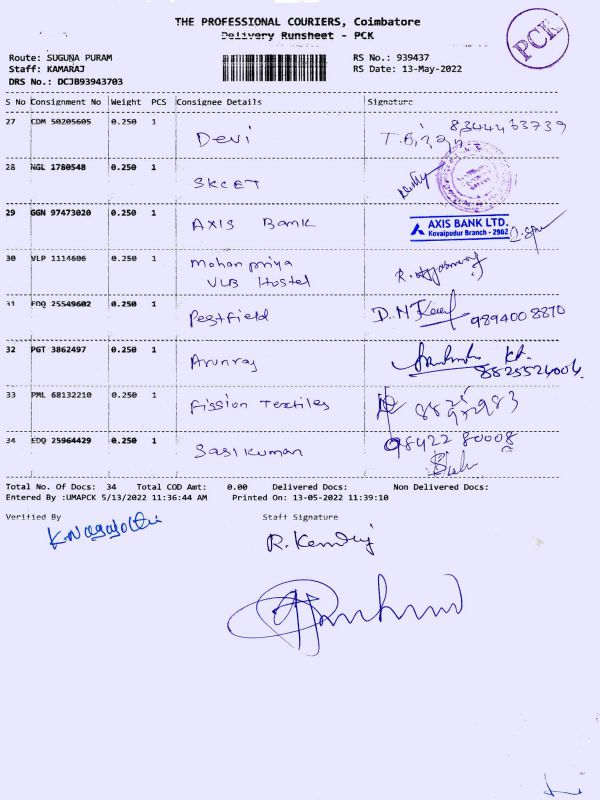 THE PROFESSIONAL COURIERS, Coimbatore
Delivery Runsheet - PCK
PCK
Route: SUGUNA PURAM
RS No.: 939437
Staff: KAMARAJ
RS Date: 13-May-2022
DRS No.: DCJB93943703
S No Consignment No Weight PCS Consignee Details Signature
27 CDM 50205605 0.250 1 Devi 8344463739
28 NGL 1780548 0.250 1 SKCET
29 GGN 97473020 0.250 1 AXIS Bank AXIS BANK LTD.
Kovaipudur Branch - 2902
30 VLP 1114606 0.250 1 Mohan priya
VLB Hostel
31 EDQ 25549602 0.250 1 Pestfield 9894008870
32 PGT 3862497 0.250 1 Arunraj
8825524004
33 PML 68132210 0.250 1 Fission Textiles
34 EDQ 25964429 0.250 1 Sasikumar 9842280008
Total No. Of Docs: 34 Total COD Amt: 0.00 Delivered Docs: Non Delivered Docs:
Entered By :UMAPCK 5/13/2022 11:36:44 AM Printed On: 13-05-2022 11:39:10
Verified By Staff Signature